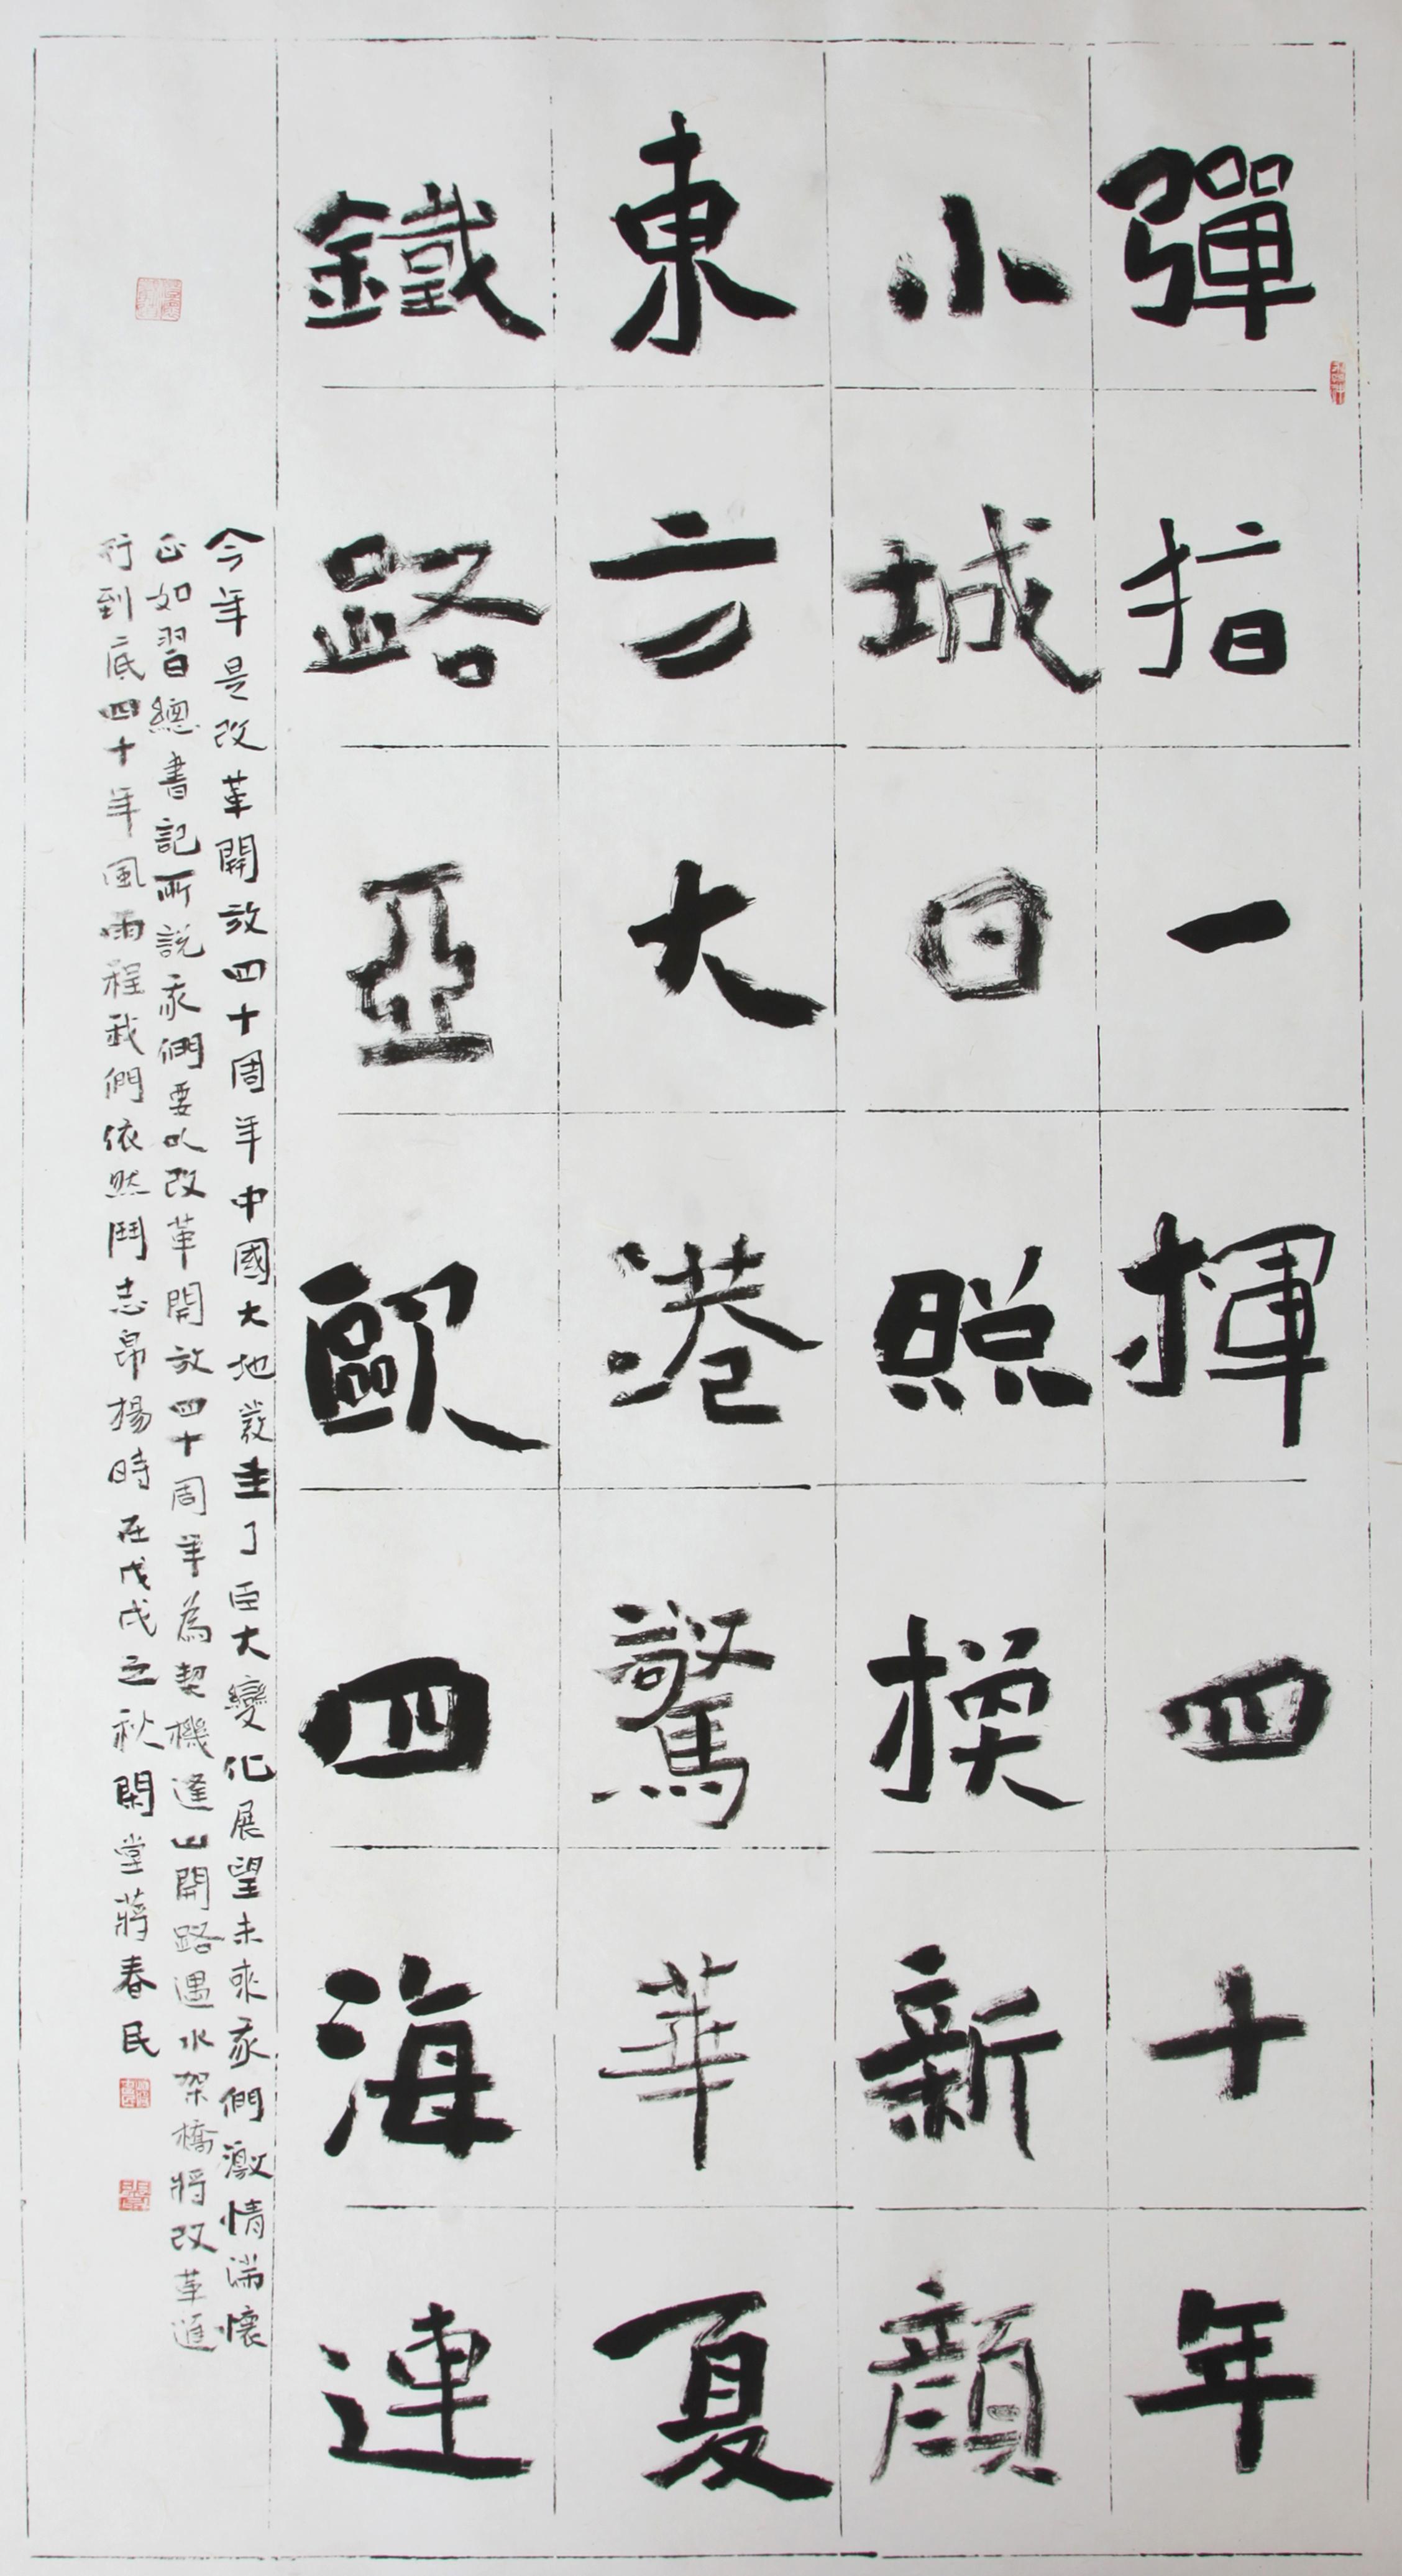 彈指一揮四十年
小城日照換新顏
東方大港驚華夏
鐵路亞歐四海連
今年是改革開放四十周年中國大地發生了巨大變化展望未來我們激情滿懷
正如習總書記所說我們要以改革開放四十周年為契機逢山開路遇水架橋將改革進
行到底四十年風雨程我們依然鬥志昂揚時在戊戌之秋閑堂蔣春民